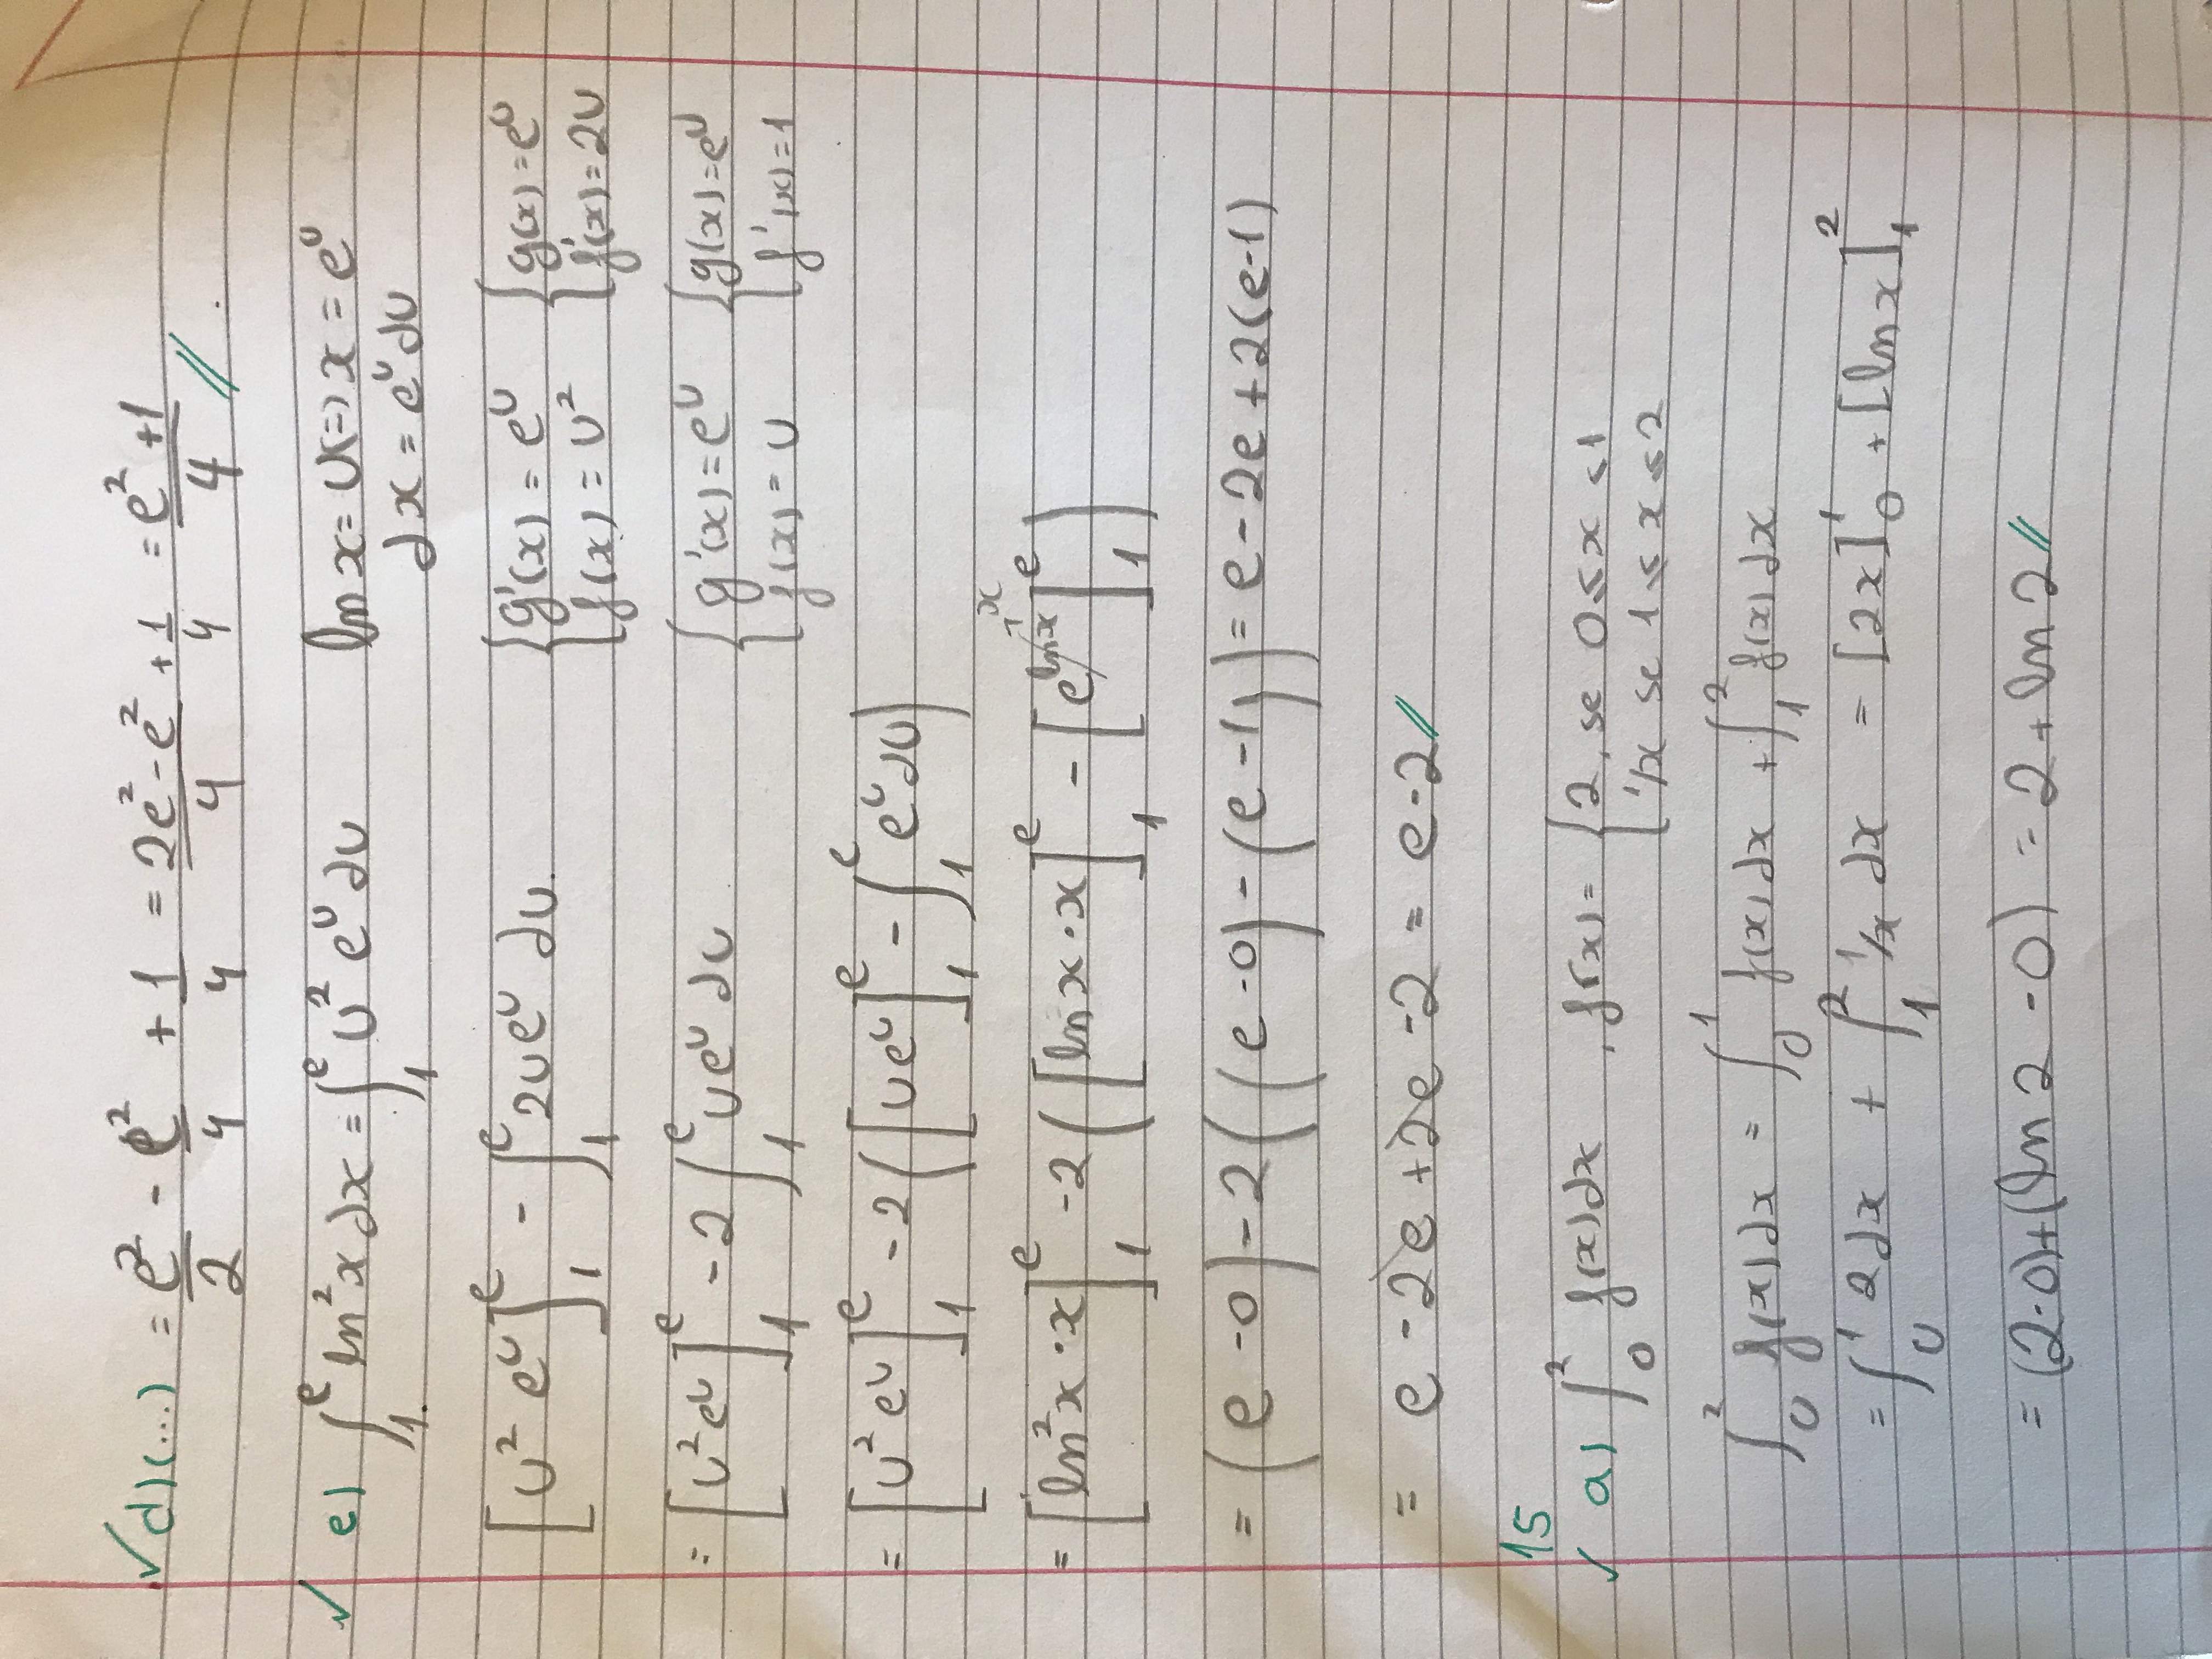 ✓ d) (...) = e²/2 - e²/4 + 1/4 = (2e² - e²)/4 + 1/4 = (e² + 1)/4 //
✓ e) ∫₁ᵉ ln²x dx = ∫₁ᵉ U² eᵁ dU    ln x = U (=) x = eᵁ
dx = eᵁ dU
[U² eᵁ]₁ᵉ - ∫₁ᵉ 2U eᵁ dU.    { g'(x) = eᵁ    { g(x) = eᵁ
{ f(x) = U²    { f'(x) = 2U
= [U² eᵁ]₁ᵉ - 2 ∫₁ᵉ U eᵁ dU    { g'(x) = eᵁ    { g(x) = eᵁ
{ f(x) = U    { f'(x) = 1
= [U² eᵁ]₁ᵉ - 2 ( [U eᵁ]₁ᵉ - ∫₁ᵉ eᵁ dU )
= [ln²x · x]₁ᵉ - 2 ( [ln x · x]₁ᵉ - [e^(ln x) → x]₁ᵉ )
= (e - 0) - 2 ( (e - 0) - (e - 1) ) = e - 2e + 2(e-1)
= e - 2e + 2e - 2 = e - 2 //
15
✓ a) ∫₀² f(x) dx , f(x) = { 2, se 0 ≤ x < 1
{ 1/x se 1 ≤ x ≤ 2
∫₀² f(x) dx = ∫₀¹ f(x) dx + ∫₁² f(x) dx
= ∫₀¹ 2 dx + ∫₁² 1/x dx = [2x]₀¹ + [ln x]₁²
= (2-0) + (ln 2 - 0) = 2 + ln 2 //